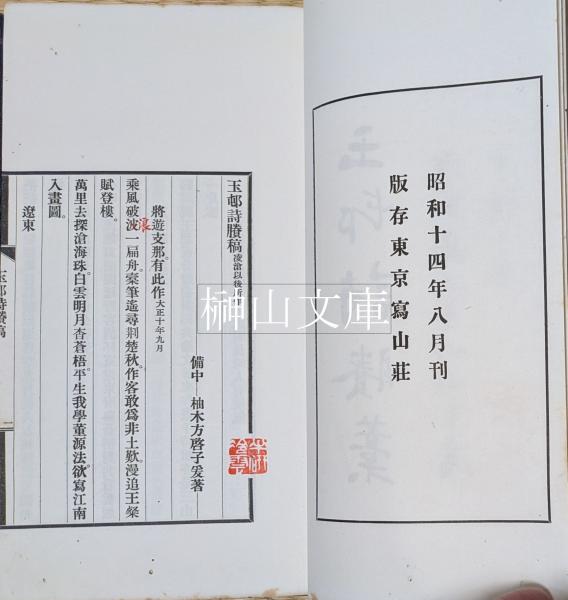 昭和十四年八月刊
版存東京寫山莊
玉邨詩賸稿 凌滄以後
備中 柚木方啓子爰著
將遊支那。有此作 大正十年九月
乘風破波一扁舟。豪筆遙尋荆楚秋。作客敢爲非土歎。漫追王粲
浪
賦登樓。
萬里去探滄海珠。白雲明月杳蒼梧。平生我學董源法。欲寫江南
入畫圖。
遼東
玉邨詩賸稿
榊山文庫